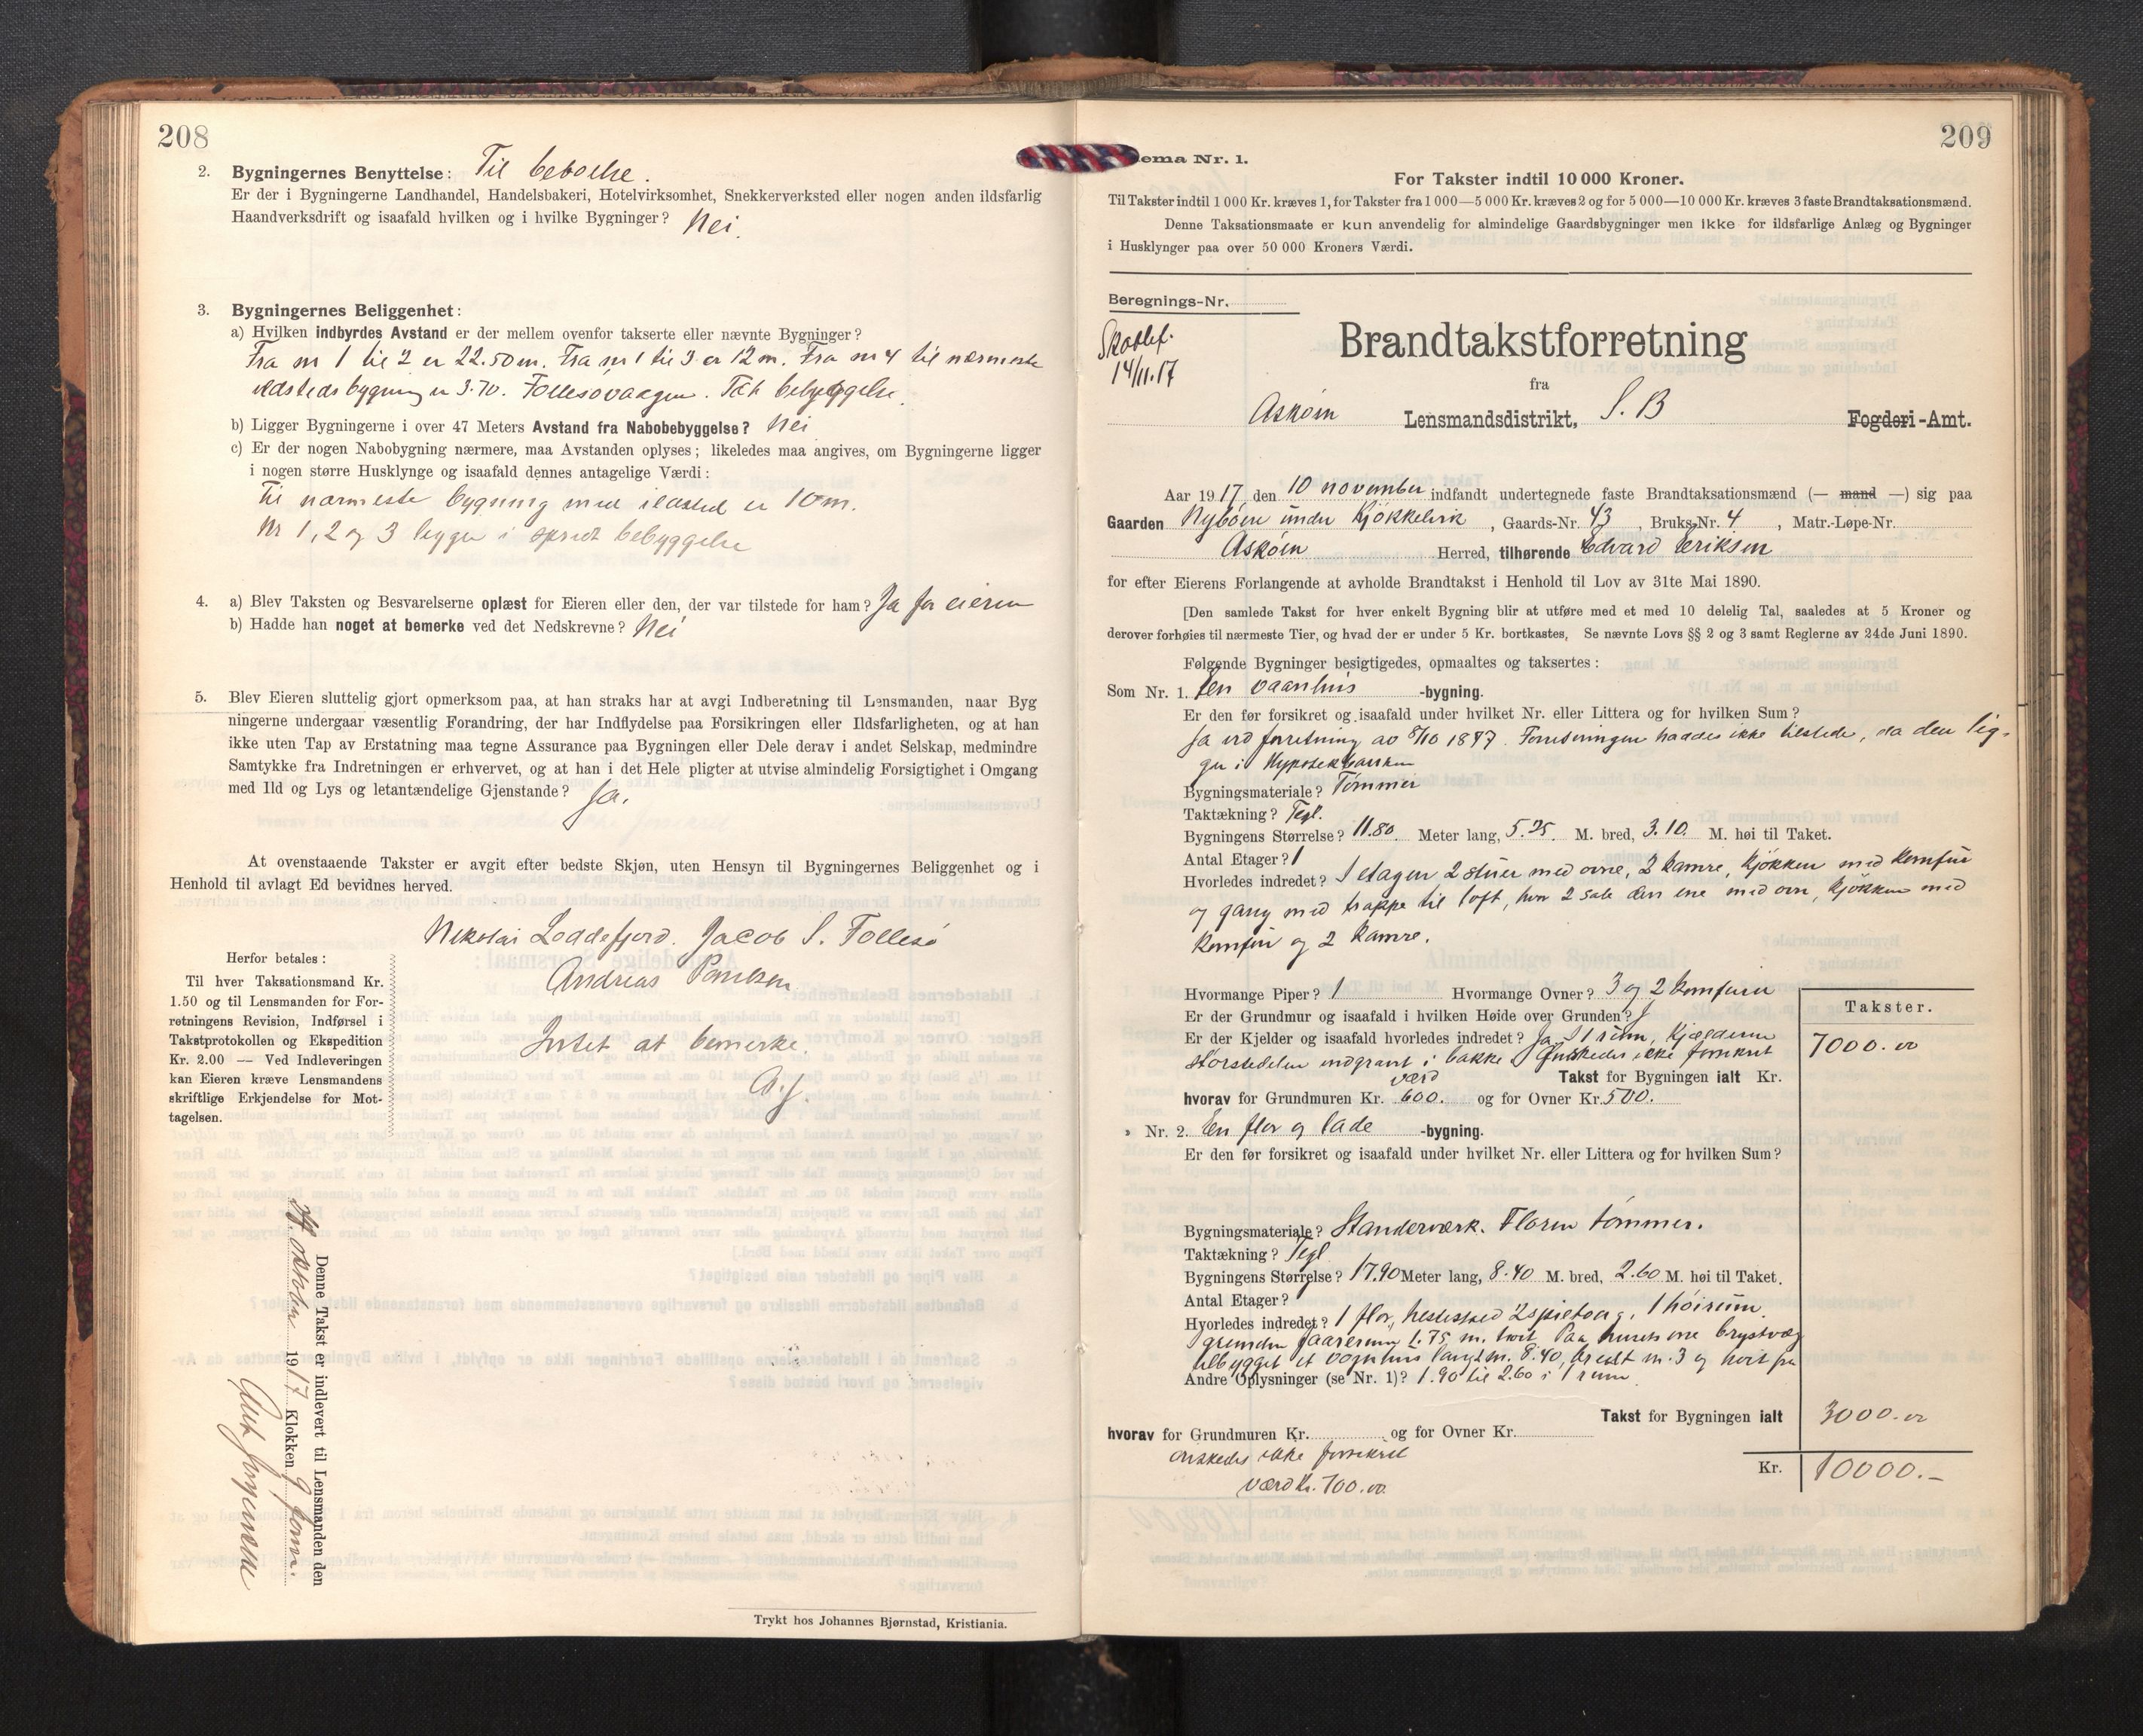 208
2. Bygningernes Benyttelse: Til beboelse.
Er der i Bygningerne Landhandel, Handelsbakeri, Hotelvirksomhet, Snekkerverksted eller nogen anden ildsfarlig
Haandverksdrift og isaafald hvilken og i hvilke Bygninger? Nei.
3. Bygningernes Beliggenhet:
a) Hvilken indbyrdes Avstand er der mellem ovenfor takserte eller nævnte Bygninger?
Fra nr 1 til 2 er 22.50 m. Fra nr 1 til 3 er 12 m. Fra nr 4 til nærmeste
ildsteds bygning er 3.70. Follesøvaagen. Tæt bebyggelse.
b) Ligger Bygningerne i over 47 Meters Avstand fra Nabobebyggelse? Nei
c) Er der nogen Nabobygning nærmere, maa Avstanden oplyses; likeledes maa angives, om Bygningerne ligger
i nogen større Husklynge og isaafald dennes antagelige Værdi:
Til nærmeste bygning med ildsted er 10 m.
Nr 1, 2 og 3 ligger i spredt bebyggelse
4. a) Blev Taksten og Besvarelserne oplæst for Eieren eller den, der var tilstede for ham? Ja for eieren
b) Hadde han noget at bemerke ved det Nedskrevne? Nei
5. Blev Eieren sluttelig gjort opmerksom paa, at han straks har at avgi Indberetning til Lensmanden, naar Byg
ningerne undergaar væsentlig Forandring, der har Indflydelse paa Forsikringen eller Ildsfarligheten, og at han
ikke uten Tap av Erstatning maa tegne Assurance paa Bygningen eller Dele derav i andet Selskap, medmindre
Samtykke fra Indretningen er erhvervet, og at han i det Hele pligter at utvise almindelig Forsigtighet i Omgang
med Ild og Lys og letantændelige Gjenstande? Ja.
At ovenstaaende Takster er avgit efter bedste Skjøn, uten Hensyn til Bygningernes Beliggenhet og i
Henhold til avlagt Ed bevidnes herved.
Nikolai Loddefjord. Jacob S. Follesø
Andreas Paulsen
Intet at bemerke.
A. J.
Herfor betales:
Til hver Taksationsmand Kr.
1.50 og til Lensmanden for For-
retningens Revision, Indførsel i
Takstprotokollen og Ekspedition
Kr. 2.00 — Ved Indleveringen
kan Eieren kræve Lensmandens
skriftlige Erkjendelse for Mot-
tagelsen.
Denne Takst er indlevert til Lensmanden den
oktober 1917 Klokken 9 form.
Trykt hos Johannes Bjørnstad, Kristiania.
209
ema Nr. 1.
For Takster indtil 10 000 Kroner.
Til Takster indtil 1 000 Kr. kræves 1, for Takster fra 1 000—5 000 Kr. kræves 2 og for 5 000—10 000 Kr. kræves 3 faste Brandtaksationsmænd.
Denne Taksationsmaate er kun anvendelig for almindelige Gaardsbygninger men ikke for ildsfarlige Anlæg og Bygninger
i Husklynger paa over 50 000 Kroners Værdi.
Beregnings-Nr.
14/11.17
Brandtakstforretning
fra
Askøen Lensmandsdistrikt, S. B Fogderi-Amt.
Aar 1917 den 10 november indfandt undertegnede faste Brandtaksationsmænd (— mand —) sig paa
Gaarden Nybøen under Kjøkkelvik, Gaards-Nr. 43, Bruks-Nr. 4, Matr.-Løpe-Nr.
Askøen Herred, tilhørende Edvard Eriksen
for efter Eierens Forlangende at avholde Brandtakst i Henhold til Lov av 31te Mai 1890.
[Den samlede Takst for hver enkelt Bygning blir at utføre med et med 10 delelig Tal, saaledes at 5 Kroner og
derover forhøies til nærmeste Tier, og hvad der er under 5 Kr. bortkastes, Se nævnte Lovs §§ 2 og 3 samt Reglerne av 24de Juni 1890.
Følgende Bygninger besigtigedes, opmaaltes og taksertes:
Som Nr. 1. Een vaanhus -bygning.
Er den før forsikret og isaafald under hvilket Nr. eller Littera og for hvilken Sum?
Ja ved forretning av 8/10 1897. Forretningen haddes ikke tilstede, da den lig-
ger i Hypotekbanken
Bygningsmateriale? Tømmer
Taktækning? Tegl.
Bygningens Størrelse? 11.80 Meter lang, 5.25 M. bred, 3.10 M. høi til Taket.
Antal Etager? 1
Hvorledes indredet? I etagen 2 stuer med ovne, 2 kamre, kjøkken med komfur
og gang med trappe til loft, hvor 2 sale den ene med ovn, kjøkken med
komfur og 2 kamre.
Hvormange Piper? 1 Hvormange Ovner? 3 og 2 komfurer
Er der Grundmur og isaafald i hvilken Høide over Grunden?
Er der Kjelder og isaafald hvorledes indredet? Ja I 1 rum, Kjælderen
størstedelen indgravet i bakke Ønskedes ikke forsikret
Takst for Bygningen ialt Kr.
Takster.
7000.00
værd
hvorav for Grundmuren Kr. 600. og for Ovner Kr. 500.
» Nr. 2. En flor og lade -bygning.
Er den før forsikret og isaafald under hvilket Nr. eller Littera og for hvilken Sum?
Bygningsmateriale? Standerværk. Floren tømmer.
Taktækning? Tegl
Bygningens Størrelse? 17.90 Meter lang, 8.40 M. bred, 2.60 M. høi til Taket.
Antal Etager?
Hvorledes indredet? 1 flor, hestestald 2 spiltoug, 1 høirum.
1.75 m. høit. Paa husets ene brystvæg
tilbygget et vognhus langt m. 8.40, bredt m. 3 og høit fra
Andre Oplysninger (se Nr. 1)? 1.90 til 2.60 i 1 rum
Takst for Bygningen ialt 3000.00
hvorav for Grundmuren Kr. og for Ovner Kr.
ønskedes ikke forsikret
værd Kr. 700.00
Kr. 10000.-